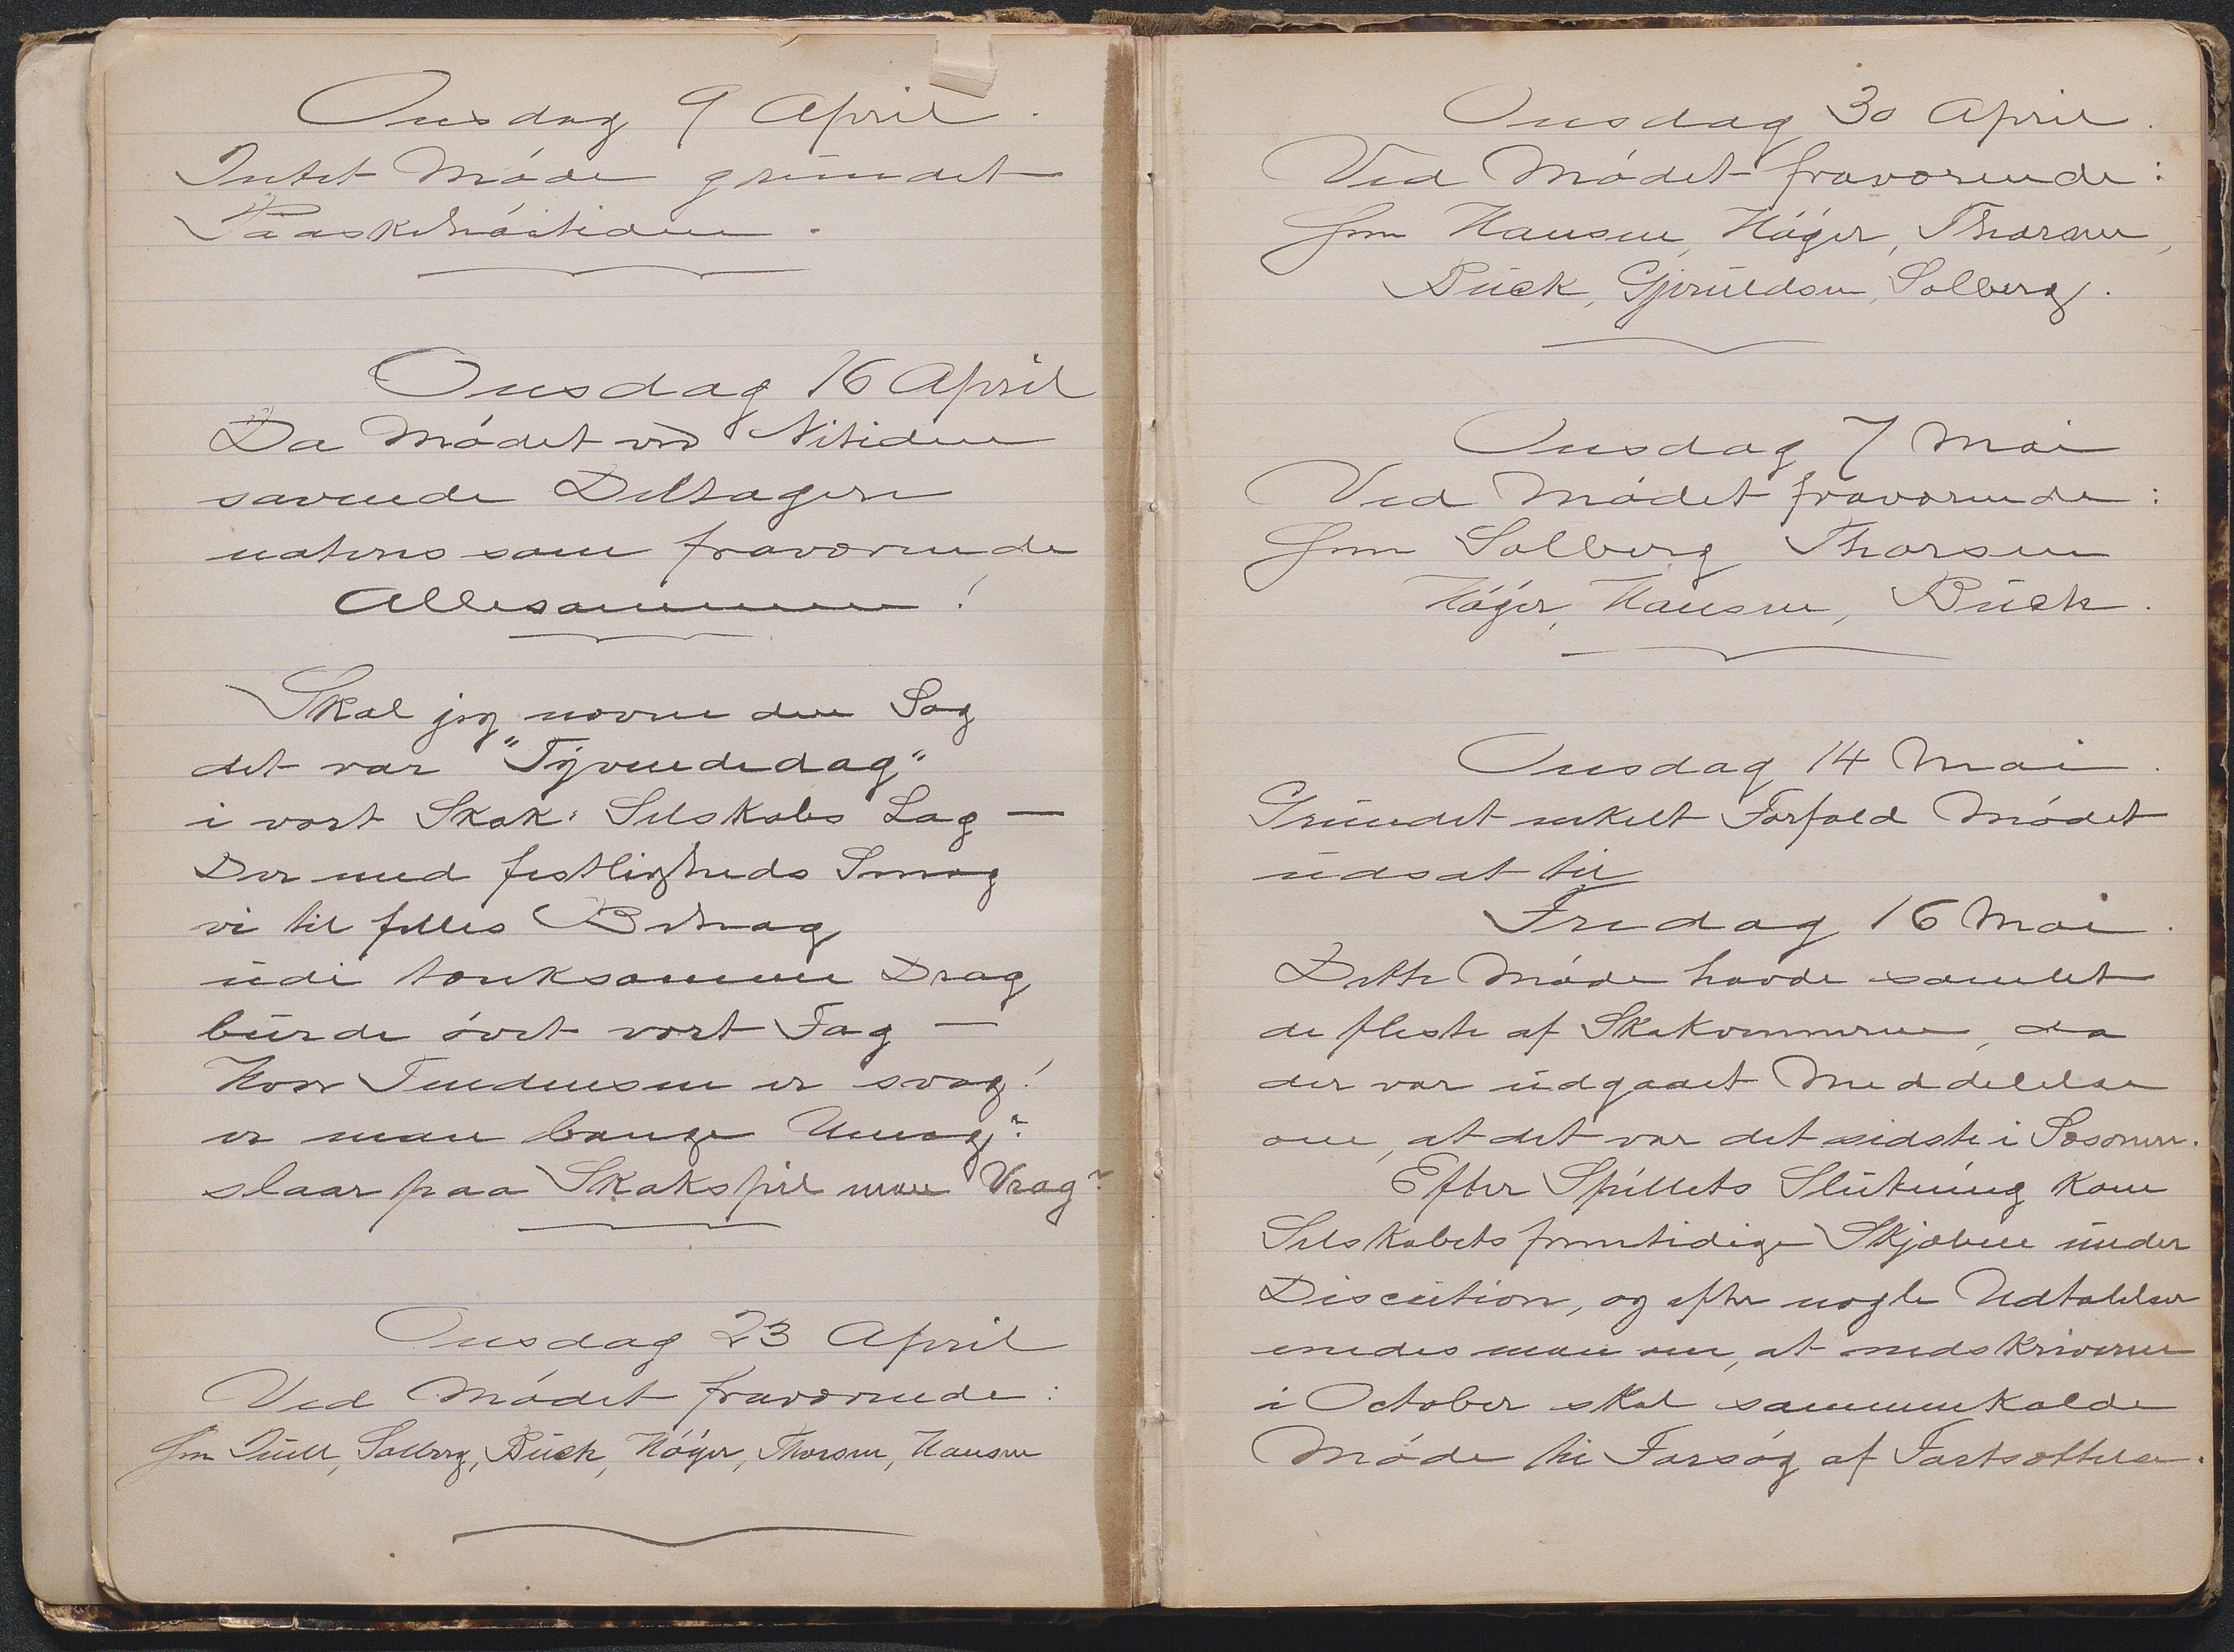 Onsdag 9 April.
Intet Møde grundet
Paaskehøitiden.
Onsdag 16 April
Da Mødet ved Nitiden
savnede Deltagere
noteres som fraværende
Allesammen!
Skal jeg nævne den Sag
det var "Tyvendedag"
i vort Skak: Selskabs Lag —
Der med festligheds Smag
vi til fælles Behag
udi tænksomme Drag
burde øvet vort Fag —
Hvor Tendensen er svag!
er man bange Umag?
slaar paa Skakspil man Vrag?
Onsdag 23 April
Ved Mødet fraværende:
Hrr Juell, Solberg, Buck, Høyer, Thorsen, Hansen
Onsdag 30 April.
Ved Mødet fraværende:
Hrr Hansen, Høyer, Thorsen,
Buck, Gjeruldsen, Solberg.
Onsdag 7 Mai
Ved Mødet fraværende:
Hrr Solberg Thorsen
Høyer, Hansen, Buck.
Onsdag 14 Mai.
Grundet enkelt Forfald Mødet
udsat til
Fredag 16 Mai.
Dette Møde havde samlet
de fleste af Skakvennerne, da
der var udgaaet Meddelelse
om, at det var det sidste i Sæsonen.
Efter Spillets Slutning kom
Selskabets fremtidige Skjæbne under
Discution, og efter nogle Udtalelser
enedes man om, at nedskriveren
i October skal sammenkalde
Møde til Forsøg af Fortsættelse.